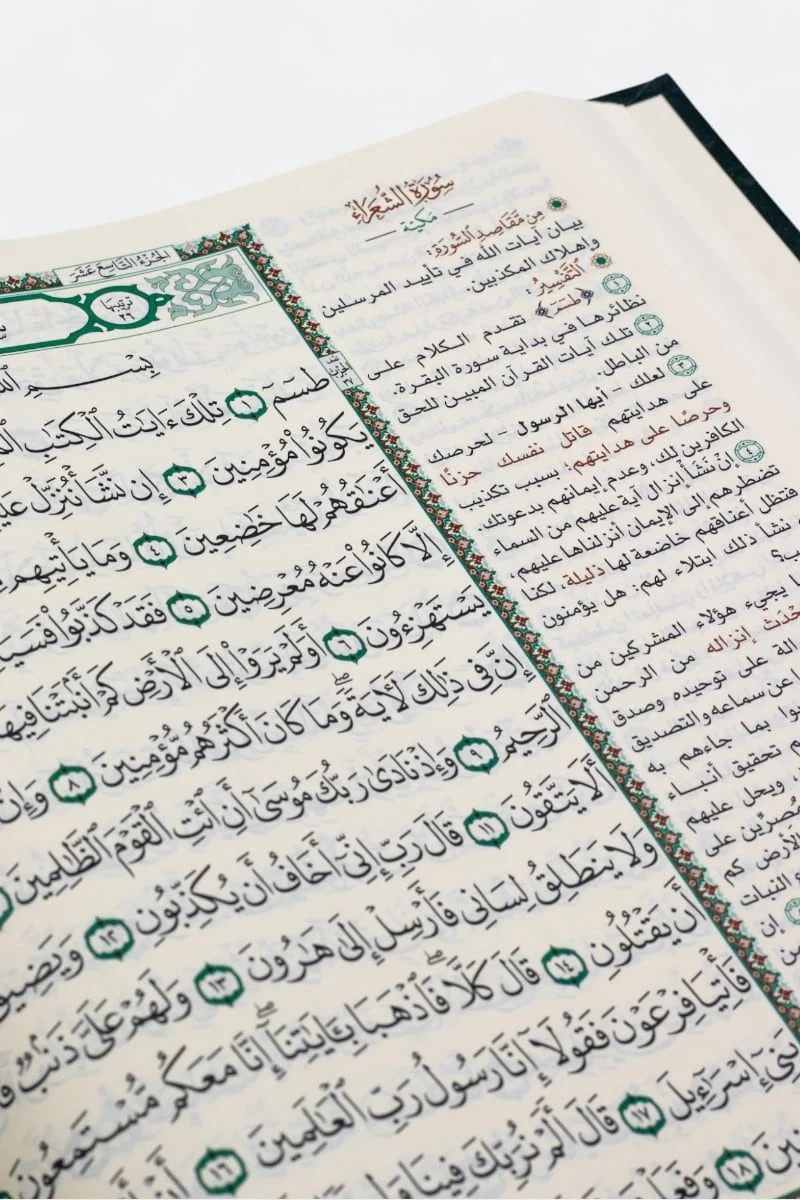 الجُزْءُ التَّاسِعَ عَشَرَ
ترتيبها
٢٦
بِسْمِ
طسٓمٓ ١ تِلْكَ ءَايَٰتُ ٱلْكِتَٰبِ
يَكُونُوا۟ مُؤْمِنِينَ ٣ إِن نَّشَأْ نُنَزِّلْ
أَعْنَٰقُهُمْ لَهَا خَٰضِعِينَ ٤ وَمَا يَأْتِيهِم
إِلَّا كَانُوا۟ عَنْهُ مُعْرِضِينَ ٥ فَقَدْ كَذَّبُوا۟
يَسْتَهْزِءُونَ ٦ أَوَلَمْ يَرَوْا۟ إِلَى ٱلْأَرْضِ كَمْ أَنۢبَتْنَا فِيهَا
إِنَّ فِى ذَٰلِكَ لَءَايَةً ۖ وَمَا كَانَ أَكْثَرُهُم مُّؤْمِنِينَ ٨ وَإِنَّ
ٱلرَّحِيمُ ٩ وَإِذْ نَادَىٰ رَبُّكَ مُوسَىٰٓ أَنِ ٱئْتِ ٱلْقَوْمَ ٱلظَّٰلِمِينَ
أَلَا يَتَّقُونَ ١١ قَالَ رَبِّ إِنِّىٓ أَخَافُ أَن يُكَذِّبُونِ ١٢ وَيَضِيقُ
وَلَا يَنطَلِقُ لِسَانِى فَأَرْسِلْ إِلَىٰ هَٰرُونَ ١٣ وَلَهُمْ عَلَىَّ ذَنۢبٌ
أَن يَقْتُلُونِ ١٤ قَالَ كَلَّا ۖ فَٱذْهَبَا بِـَٔايَٰتِنَآ ۖ إِنَّا مَعَكُم مُّسْتَمِعُونَ
فَأْتِيَا فِرْعَوْنَ فَقُولَآ إِنَّا رَسُولُ رَبِّ ٱلْعَٰلَمِينَ ١٦ أَنْ
بَنِىٓ إِسْرَٰٓءِيلَ ١٧ قَالَ أَلَمْ نُرَبِّكَ فِينَا
١٨
سُورَةُ الشُّعَرَاءِ
مَكِّيَّة
مِن مَّقَاصِدِ السُّورَةِ:
بيان آيات الله في تأييد المرسلين
وإهلاك المكذبين.
التَّفْسِيرُ:
١ ﴿طسٓمٓ﴾ تقدم الكلام على
نظائرها في بداية سورة البقرة.
٢ تلك آيات القرآن المبين للحق
من الباطل.
٣ لعلك - أيها الرسول - لحرصك
على هدايتهم قاتل نفسك حزنًا
وحرصًا على هدايتهم؛ بسبب تكذيب
الكافرين لك، وعدم إيمانهم بدعوتك.
٤ إن نشأ إنزال آية عليهم من السماء
تضطرهم إلى الإيمان أنزلناها عليهم،
فتظل أعناقهم خاضعة لها ذليلة، لكنا
نشأ ذلك ابتلاء لهم: هل يؤمنون
يجيء هؤلاء المشركين من
إنزاله من الرحمن
على توحيده وصدق
عن سماعه والتصديق
بما جاءهم به
تحقيق أنباء
ويحل عليهم
مُصرِّين على
الأرض كم
النبات
إن